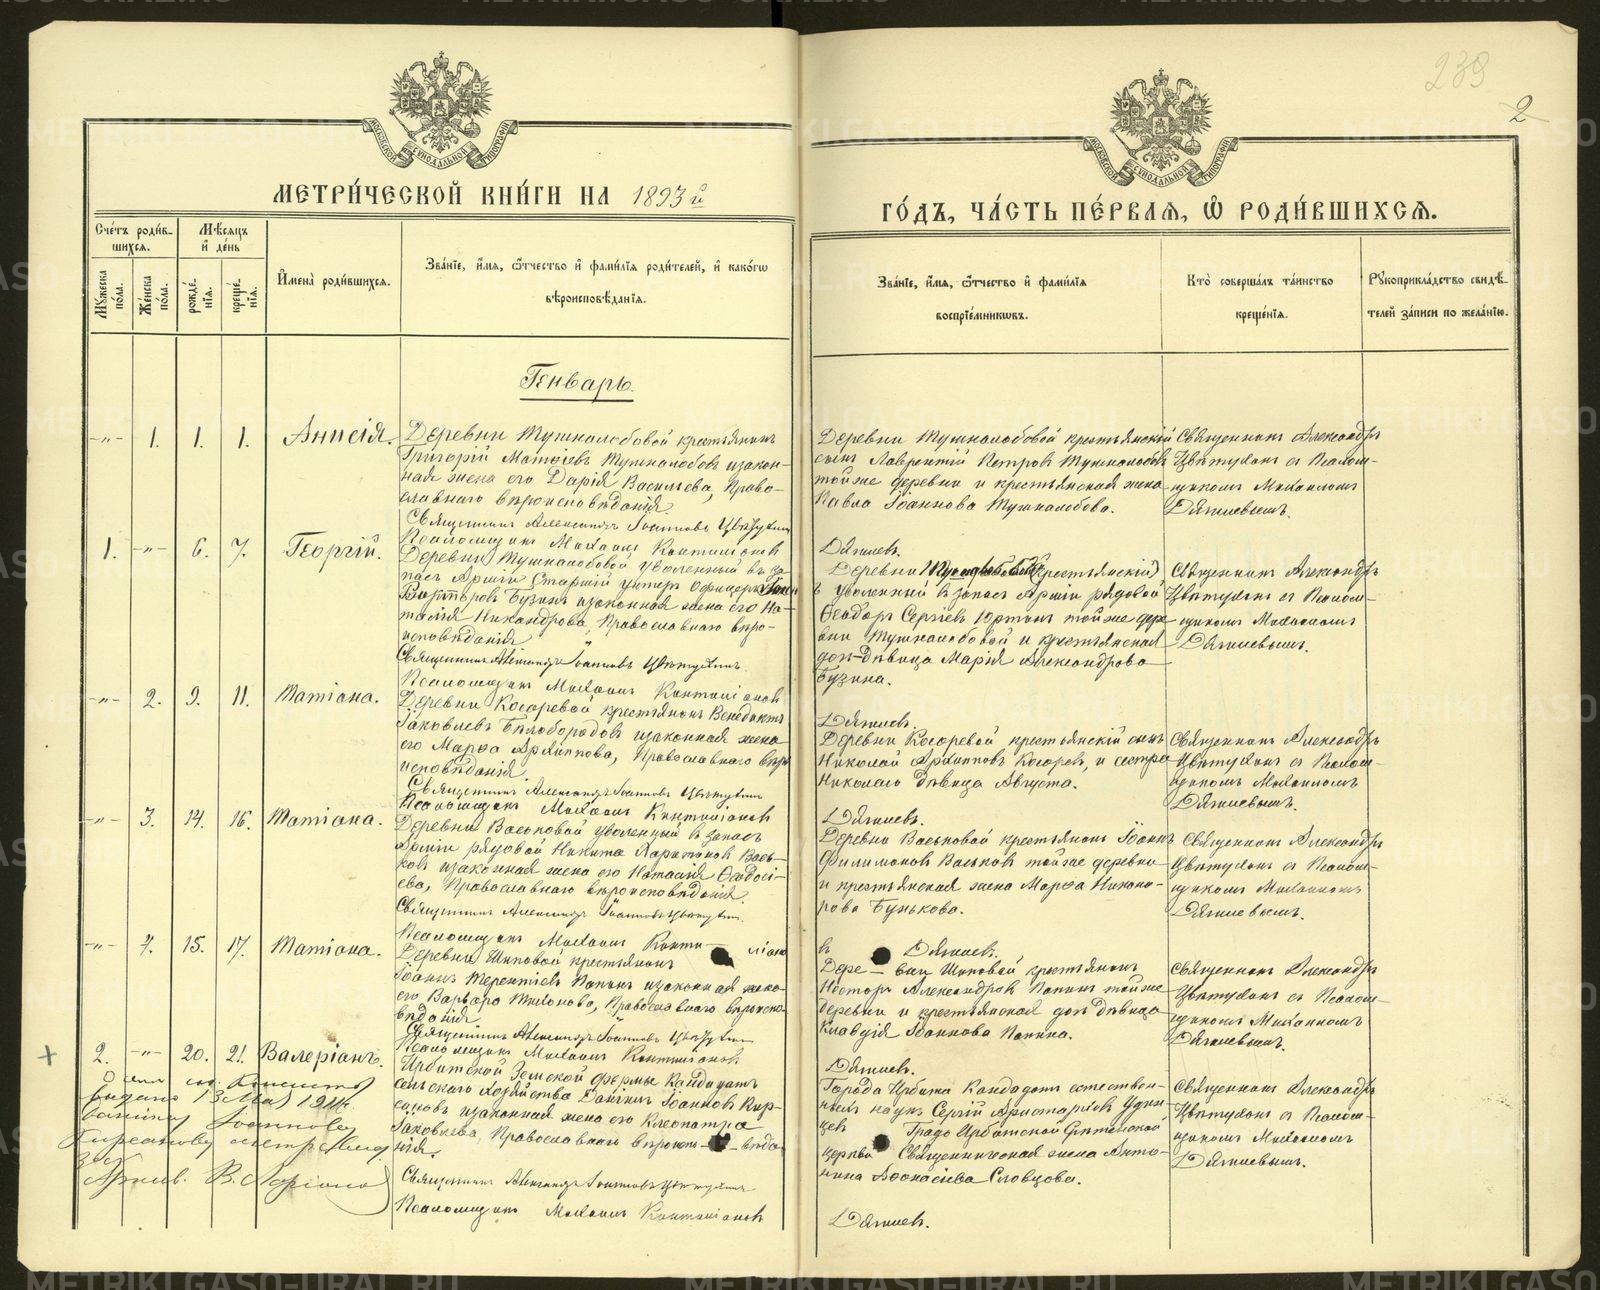 239
2
МОСКОВСКОЙ СѴНОДАЛЬНОЙ ТИПОГРАФІИ
МОСКОВСКОЙ СѴНОДАЛЬНОЙ ТИПОГРАФІИ
МЕТРИ́ЧЕСКОЙ КНИ́ГИ НА 1893й
ГО́ДЪ, ЧА́СТЬ ПЕ́РВАЯ, Ѡ РОДИ́ВШИХСЯ.
Сче́тъ роди́в-
шихся.
Мѣ́сяцъ
и де́нь
Мꙋжеска по́ла.
Же́нска по́ла.
рожде́-
нїя.
креще́-
нїя.
Имена̀ роди́вшихся.
Зва́нїе, и́мя, ѻ́тчество и фами́лїя роди́телей, и како́гѡ
вѣроисповѣ́данїя.
Зва́нїе, и́мя, ѻ́тчество и фами́лїя
воспрїе́мникѡвъ.
Кто̀ соверша́лъ та́инство
креще́нїя.
Рꙋкоприкла́дство свидѣ́-
телей за́писи по жела́нїю.
Генварь.
-„- 1. 1. 1. Анисія.
Деревни Тушкалобовой крестьянинъ
Григорій Матѳіевъ Тушкалобовъ и закон-
ная жена его Дарія Васильева, Право-
славнаго вѣроисповѣданія.
Священникъ Александръ Іоанновъ Цвѣтухинъ
Псаломщикъ Михаилъ Контиліановъ
Деревни Тушкалобовой крестьянскій
сынъ Лаврентій Петровъ Тушкалобовъ
той же деревни и крестьянская жена
Павла Іоаннова Тушкалобова.
Дягилевъ.
Священникъ Александръ
Цвѣтухинъ съ Псалом-
щикомъ Михаиломъ
Дягилевымъ.
1. -„- 6. 7. Георгій.
Деревни Тушкалобовой уволенный въ за-
пасъ Арміи Старшій унтеръ Офицеръ
Бузинъ и законная жена его На-
талія Никандрова, Православнаго вѣро-
исповѣданія
Священникъ Александръ Іоанновъ Цвѣтухинъ.
Псаломщикъ Михаилъ Контиліановъ
Деревни (крестьянскій)
уволенный въ запасъ Арміи рядовой
Ѳеодоръ Сергіевъ Юртинъ той же дере-
вни Тушкалобовой и крестьянская
дочь-дѣвица Марія Александрова
Бузина.
Дягилевъ.
Священникъ Александръ
Цвѣтухинъ съ Псалом-
щикомъ Михаиломъ
Дягилевымъ.
-„- 2. 9. 11. Татіана.
Деревни Косаревой крестьянинъ Венедиктъ
Іаковлевъ Бѣлобородовъ и законная жена
его Марѳа Архиппова, Православнаго вѣро-
исповѣданія
Священникъ Александръ Іоанновъ Цвѣтухинъ
Псаломщикъ Михаилъ Контиліановъ
Деревни Косаревой крестьянскій сынъ
Николай Архипповъ Косаревъ, и сестра
Николаю дѣвица Августа.
Дягилевъ.
Священникъ Александръ
Цвѣтухинъ съ Псалом-
щикомъ Михаиломъ
Дягилевымъ.
-„- 3. 14. 16. Татіана.
Деревни Васьковой уволенный въ запасъ
Арміи рядовой Никита Харитоновъ Вась-
ковъ и законная жена его Наталія Ѳеодосі-
ева, Православнаго вѣроисповѣданія.
Священникъ Александръ Іоанновъ Цвѣтухинъ.
Псаломщикъ Михаилъ Конти- ліано
Деревни Васьковой крестьянинъ Іоаннъ
Филимоновъ Васьковъ той же деревни
и крестьянская жена Марѳа Никано-
рова Бунькова.
въ Дягилевъ.
Священникъ Александръ
Цвѣтухинъ съ Псалом-
щикомъ Михаиломъ
Дягилевымъ.
-„- 4. 15. 17. Татіана.
Деревни Шиповой крестьянинъ
Іоаннъ Терентіевъ Папинъ и законная жена
его Варвара Тихонова, Православнаго вѣроиспо-
вѣданія
Священникъ Александръ Іоанновъ Цвѣтухинъ
Псаломщикъ Михаилъ Контиліановъ
Дере- вни Шиповой крестьянинъ
Несторъ Александровъ Папинъ той же
деревни и крестьянская дочь дѣвица
Клавдія Іоаннова Папина.
Дягилевъ.
Священникъ Александръ
Цвѣтухинъ съ Псалом-
щикомъ Михаиломъ
Дягилевымъ.
+ 2. -„- 20. 21. Валеріанъ.
Ирбитской Земской фермы Кандидатъ
сельскаго хозяйства Іоанновъ Кир-
сановъ и законная жена его Клеопатра
Іаковлева, Православнаго вѣроисп- вѣда-
нія.
Священникъ Александръ Іоанновъ Цвѣтухинъ
Псаломщикъ Михаилъ Контиліановъ
Города Ирбита Кандидатъ естествен-
ныхъ наукъ Сергій Аристарховъ Удин-
цевъ Града Ирбитской Срѣтенской
церкви Священническая жена Анто-
нина Аѳанасіева Словцова.
Дягилевъ.
Священникъ Александръ
Цвѣтухинъ съ Псалом-
щикомъ Михаиломъ
Дягилевымъ.
выдано 13 Мая 191
Іоаннову
Кирсанову